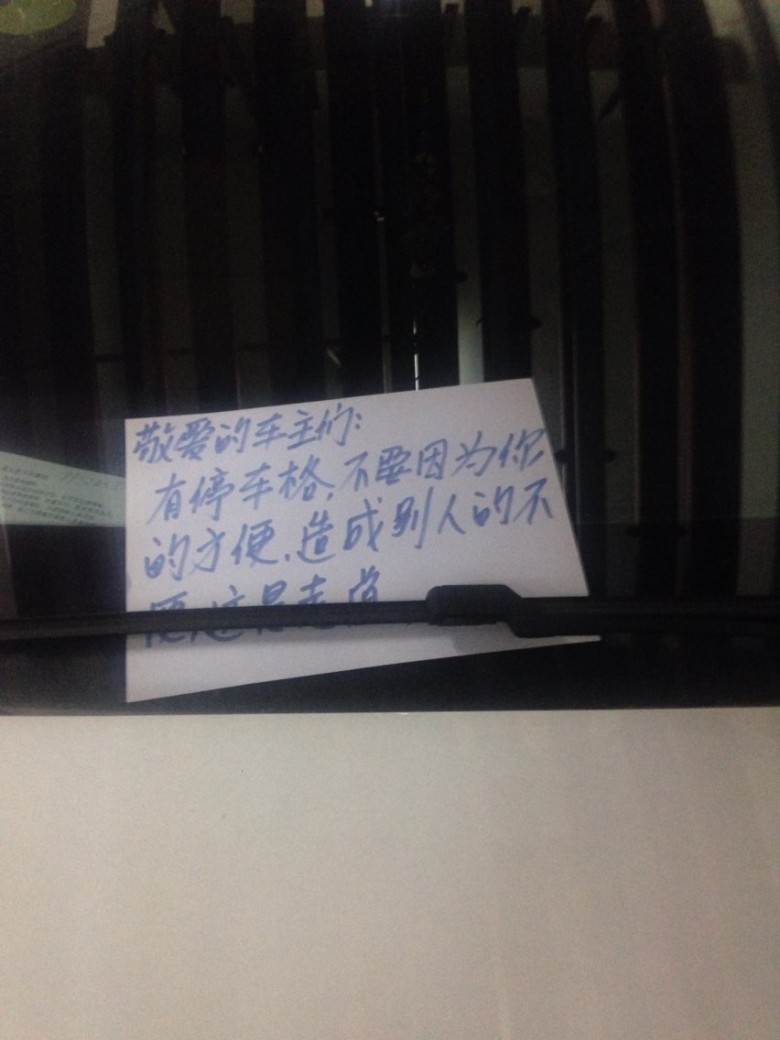 敬爱的车主们:
有停车格,不要因为你
的方便,造成别人的不
便,这是走道